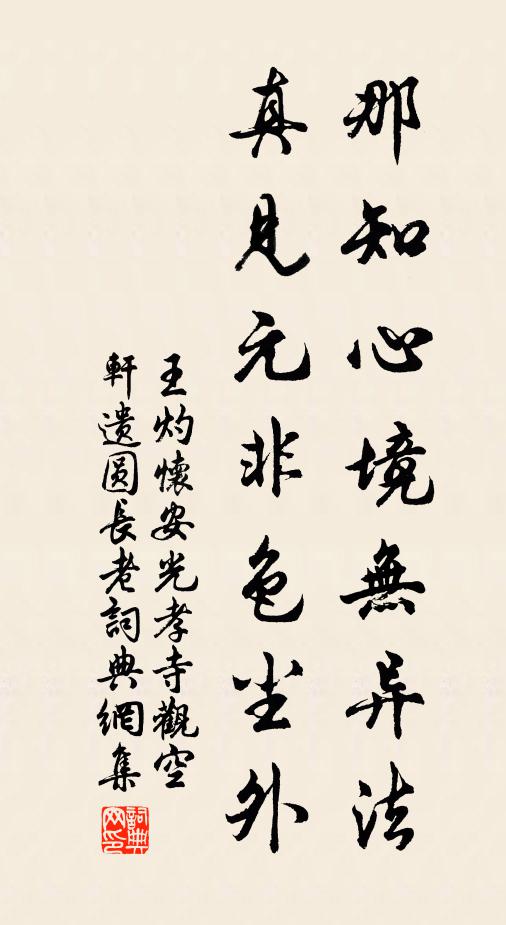 那知心境無异法
真見元非色尘外
王灼懷安光孝寺觀空
軒遗圆長老詞典網集
詞典
网印